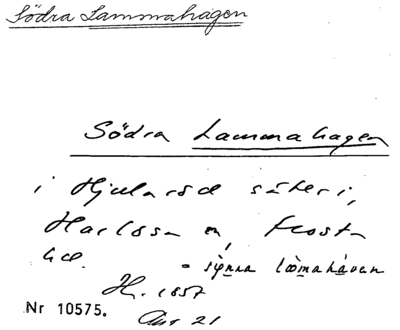 Södra Lammahagen
Södra Lammahagen
i Hjularöd säteri,
Harlösa sn, Frosta
hd. - sỳnna lòòmahàven
H. 1857
Nr 10575.